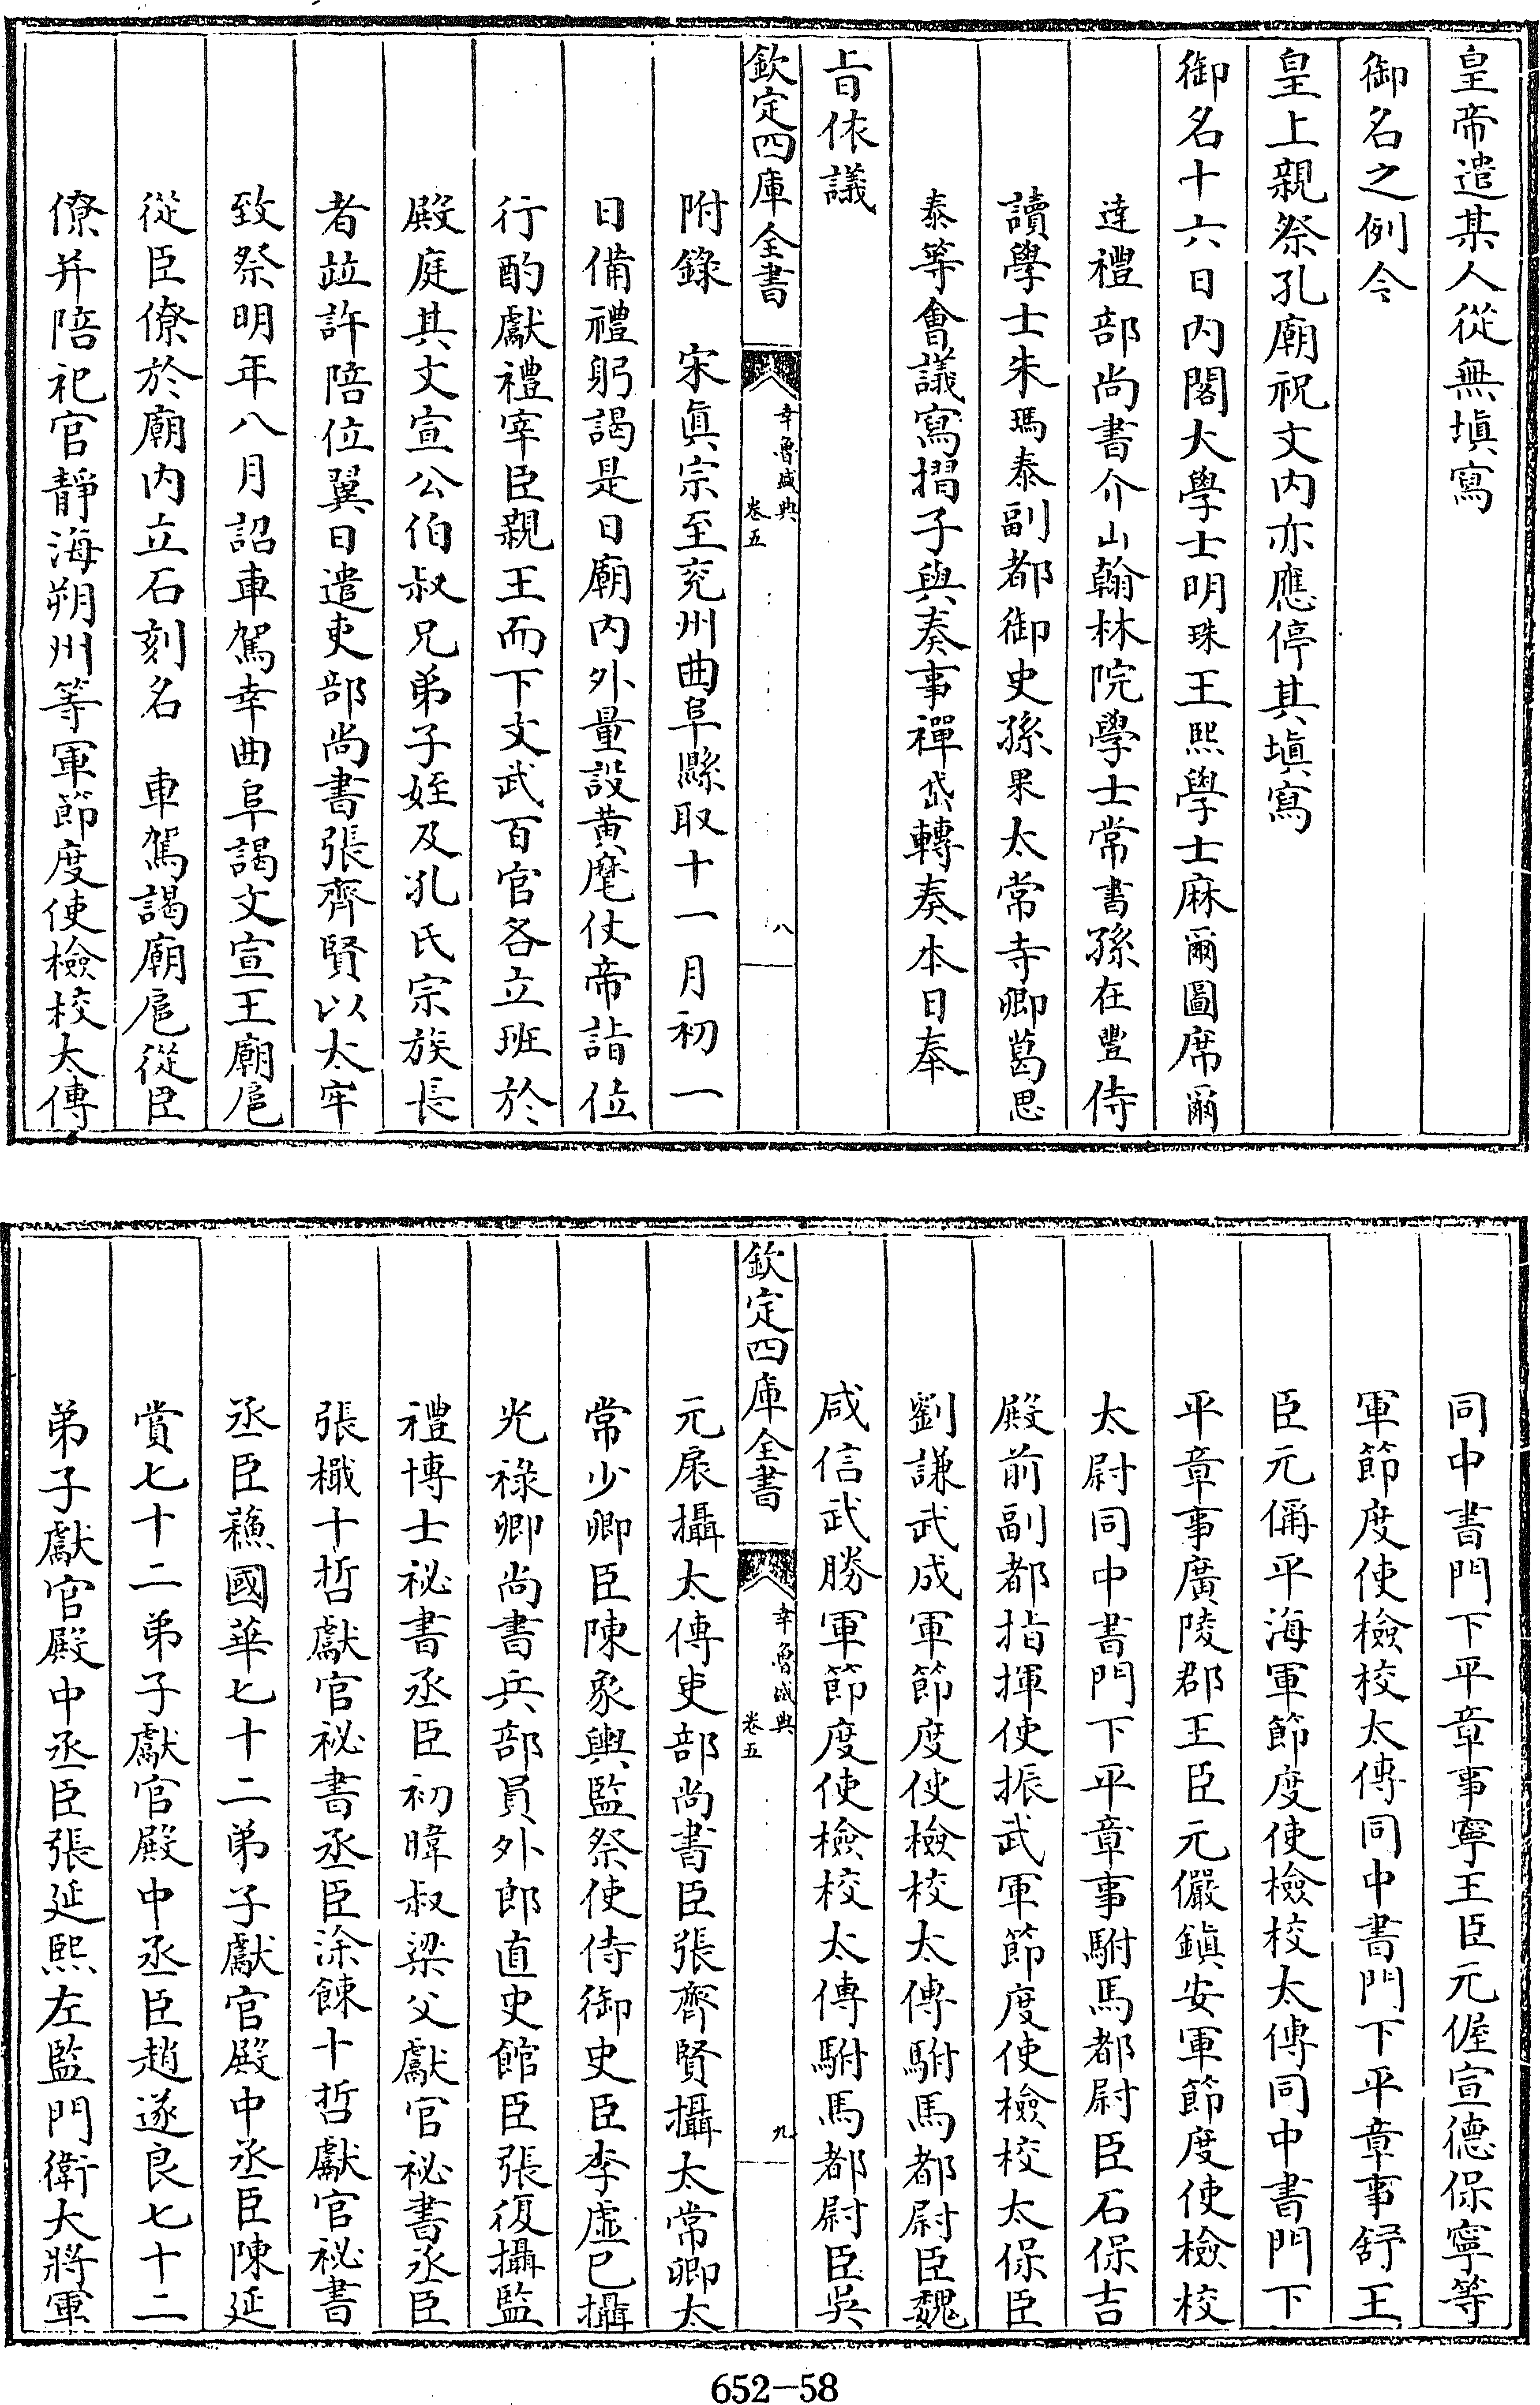 皇帝遣某人從無填寫
御名之例今
皇上親祭孔廟祝文內亦應停其填寫
御名十六日內閣大學士明珠王熙學士麻爾圖席爾
達禮部尚書介山翰林院學士常書孫在豐侍
讀學士朱瑪泰副都御史孫果太常寺卿葛思
泰等會議寫摺子與奏事禪岱轉奏本日奉
旨依議
欽定四庫全書
幸魯盛典
卷五
八
附錄　宋眞宗至兖州曲阜縣取十一月初一
日備禮躬謁是日廟內外量設黃麾仗帝詣位
行酌獻禮宰臣親王而下文武百官各立班於
殿庭其文宣公伯叔兄弟子姪及孔氏宗族長
者竝許陪位翼日遣吏部尚書張齊賢以太牢
致祭明年八月詔車駕幸曲阜謁文宣王廟扈
從臣僚於廟內立石刻名　車駕謁廟扈從臣
僚并陪祀官靜海朔州等軍節度使檢校太傅
同中書門下平章事寧王臣元偓宣德保寧等
軍節度使檢校太傅同中書門下平章事舒王
臣元偁平海軍節度使檢校太傅同中書門下
平章事廣陵郡王臣元儼鎮安軍節度使檢校
太尉同中書門下平章事駙馬都尉臣石保吉
殿前副都指揮使振武軍節度使檢校太保臣
劉謙武成軍節度使檢校太傅駙馬都尉臣魏
咸信武勝軍節度使檢校太傅駙馬都尉臣吳
欽定四庫全書
幸魯盛典
卷五
九
元扆攝太傅吏部尚書臣張齊賢攝太常卿太
常少卿臣陳象輿監祭使侍御史臣李虛已攝
光祿卿尚書兵部員外郎直史館臣張復攝監
禮博士祕書丞臣初暐叔梁父獻官祕書丞臣
張檝十哲獻官祕書丞臣涂餗十哲獻官祕書
丞臣蘓國華七十二弟子獻官殿中丞臣陳延
賞七十二弟子獻官殿中丞臣趙遂良七十二
弟子獻官殿中丞臣張延熙左監門衛大將軍
652-58